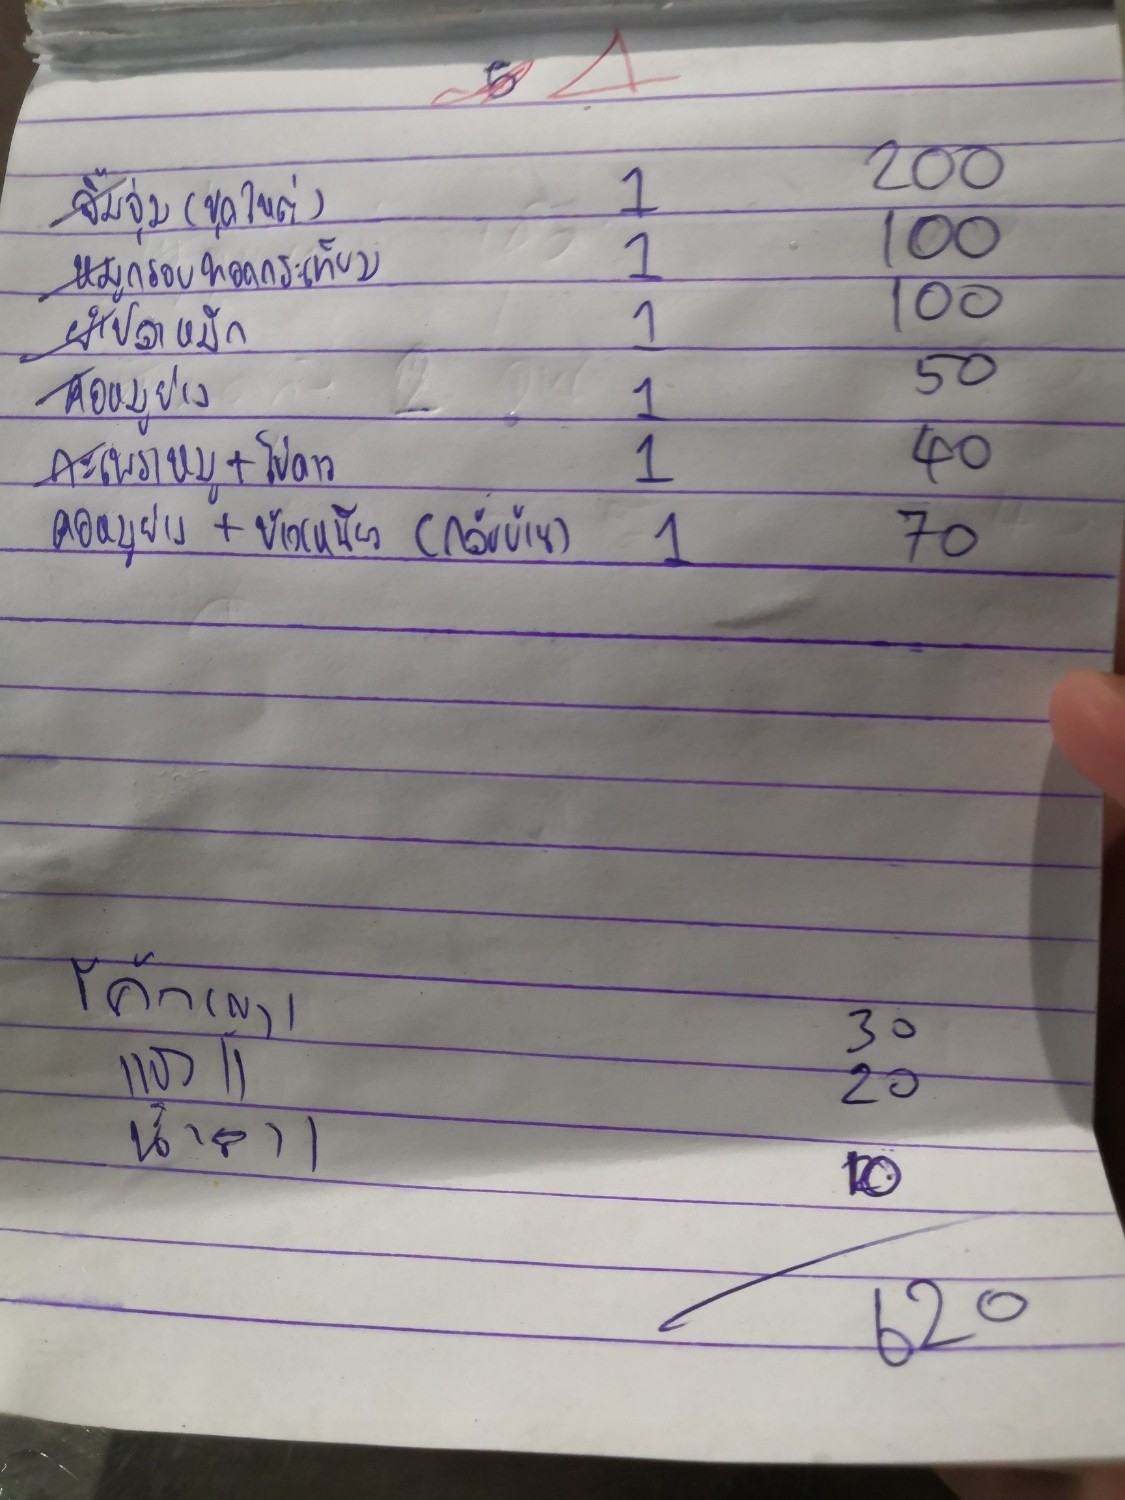 5 1
จิ้มจุ่ม (ชุดใหญ่) 1 200
หมูกรอบทอดกระเทียม 1 100
ยำปลาหมึก 1 100
คอหมูย่าง 1 50
กะเพราหมู + ไข่ดาว 1 40
คอหมูย่าง + ข้าวเหนียว (กลับบ้าน) 1 70
โค้ก 1 30
แข็ง 11 20
น้ำ 1 10
620